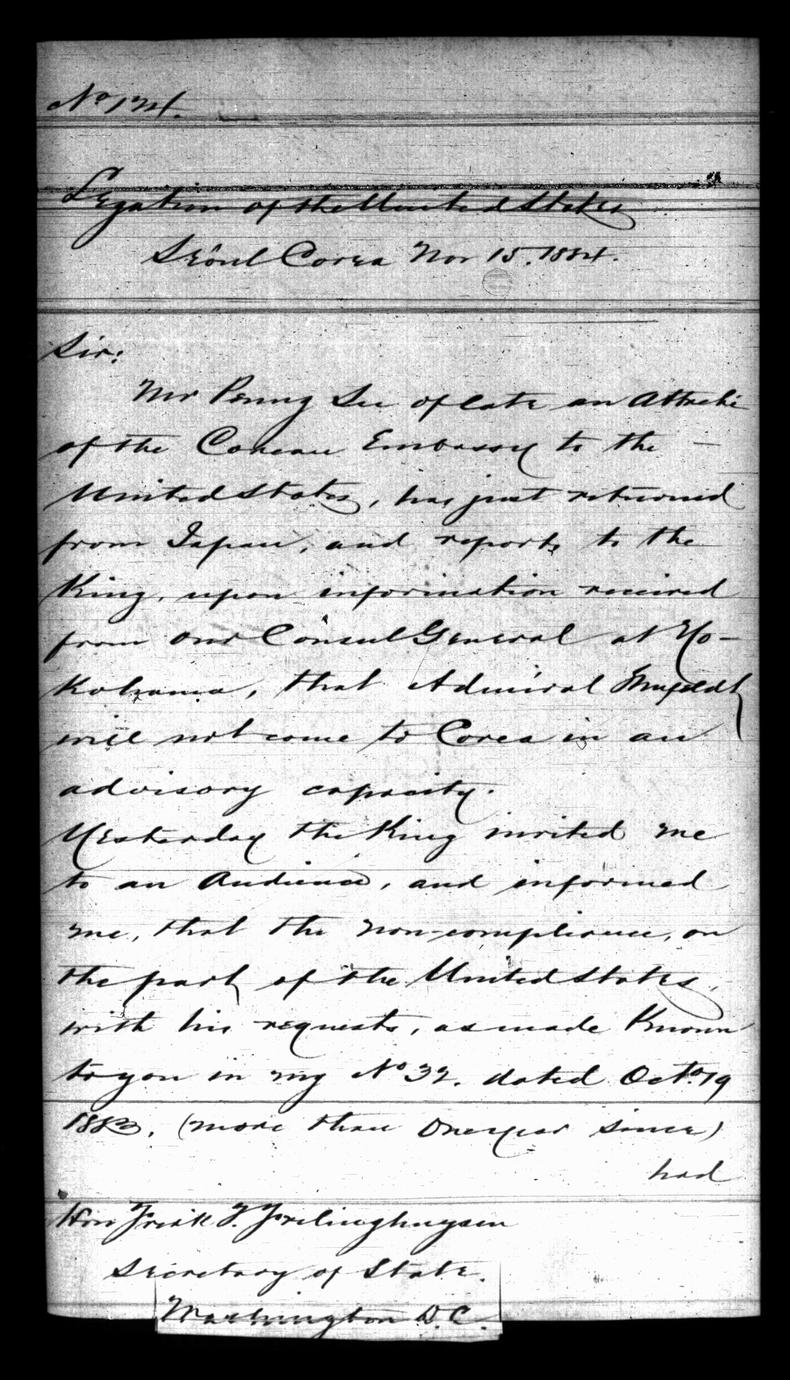 No 124.
Legation of the United States
Séoul Corea Nov 15. 1884.
Sir:
Mr Penng See of late an Attaché
of the Corean Embassy to the
United States, has just returned
from Japan, and reports to the
King, upon information received
from our Consul General at Yo-
kohama, that Admiral Shufeldt
will not come to Corea in an
advisory capacity.
Yesterday the King invited me
to an Audience, and informed
me, that the non-compliance, on
the part of the United States,
with his requests, as made Known
to you in my No 32. dated Octo. 19
1883. (more than One year since)
had
Hon Fredk T. Frelinghuysen
Secretary of State.
Washington D.C.